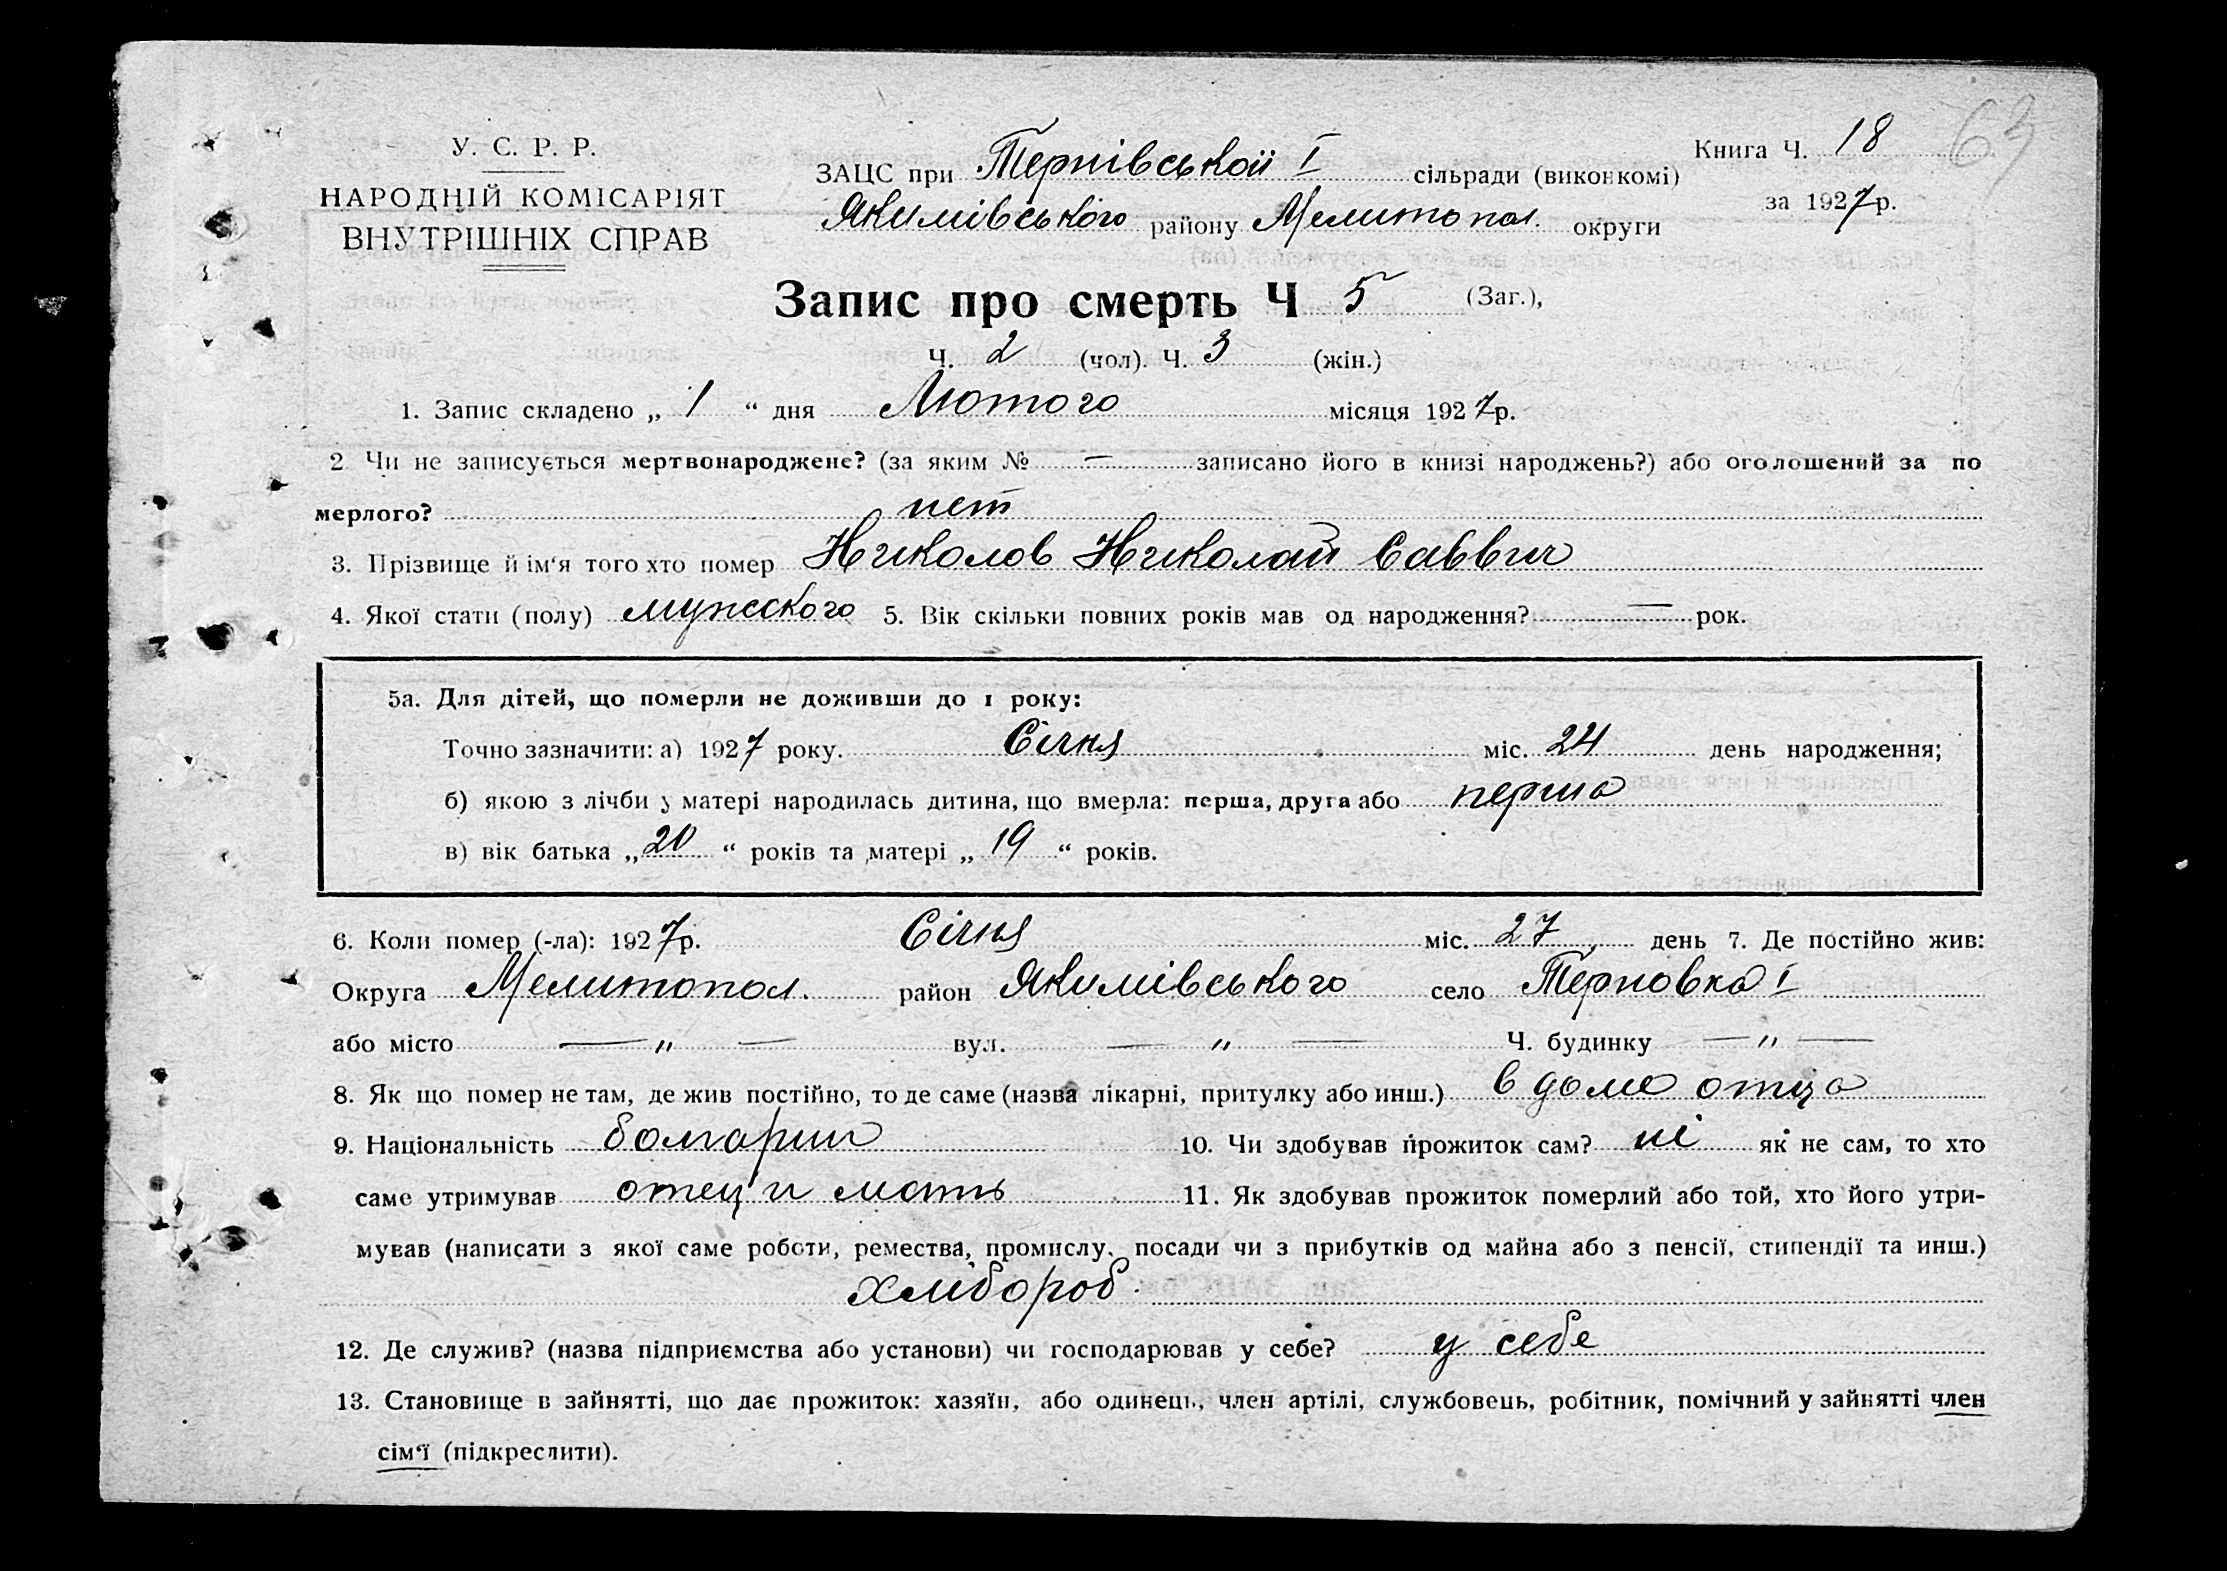 63
У. С. Р. Р.
НАРОДНІЙ КОМІСАРІЯТ
ВНУТРІШНІХ СПРАВ
ЗАЦС при Тернівськой I сільради (виконкомі)
Якимівського району Мелитопол. округи
Книга Ч. 18
за 1927р.
Запис про смерть Ч 5 (Заг.),
Ч. 2 (чол). Ч. 3 (жін.)
1. Запис складено „ 1 “ дня Лютого місяця 1927р.
2 Чи не записується мертвонароджене? (за яким № — записано його в книзі народжень?) або оголошений за по
мерлого? нет
3. Прізвище й ім'я того хто помер Николов Николай Саввич
4. Якої стати (полу) мужского 5. Вік скільки повних років мав од народження? — рок.
5а. Для дітей, що померли не доживши до 1 року:
Точно зазначити: а) 1927 року. Січня міс. 24 день народження;
б) якою з лічби у матері народилась дитина, що вмерла: перша, друга або перша
в) вік батька „20“ років та матері „19“ років.
6. Коли помер (-ла): 1927р. Січня міс. 27 день 7. Де постійно жив:
Округа Мелитопол. район Якимівського село Терновка I
або місто — „ — вул. — „ — Ч. будинку — „ —
8. Як що помер не там, де жив постійно, то де саме (назва лікарні, притулку або инш.) в доме отца
9. Національність болгарин 10. Чи здобував прожиток сам? ні як не сам, то хто
саме утримував отец и мать 11. Як здобував прожиток померлий або той, хто його утри-
мував (написати з якої саме роботи, ремества, промислу, посади чи з прибутків од майна або з пенсії, стипендії та инш.)
хлібороб.
12. Де служив? (назва підприємства або установи) чи господарював у себе? у себе
13. Становище в зайнятті, що дає прожиток: хазяїн, або одинець, член артілі, службовець, робітник, помічний у зайнятті член
сім'ї (підкреслити).